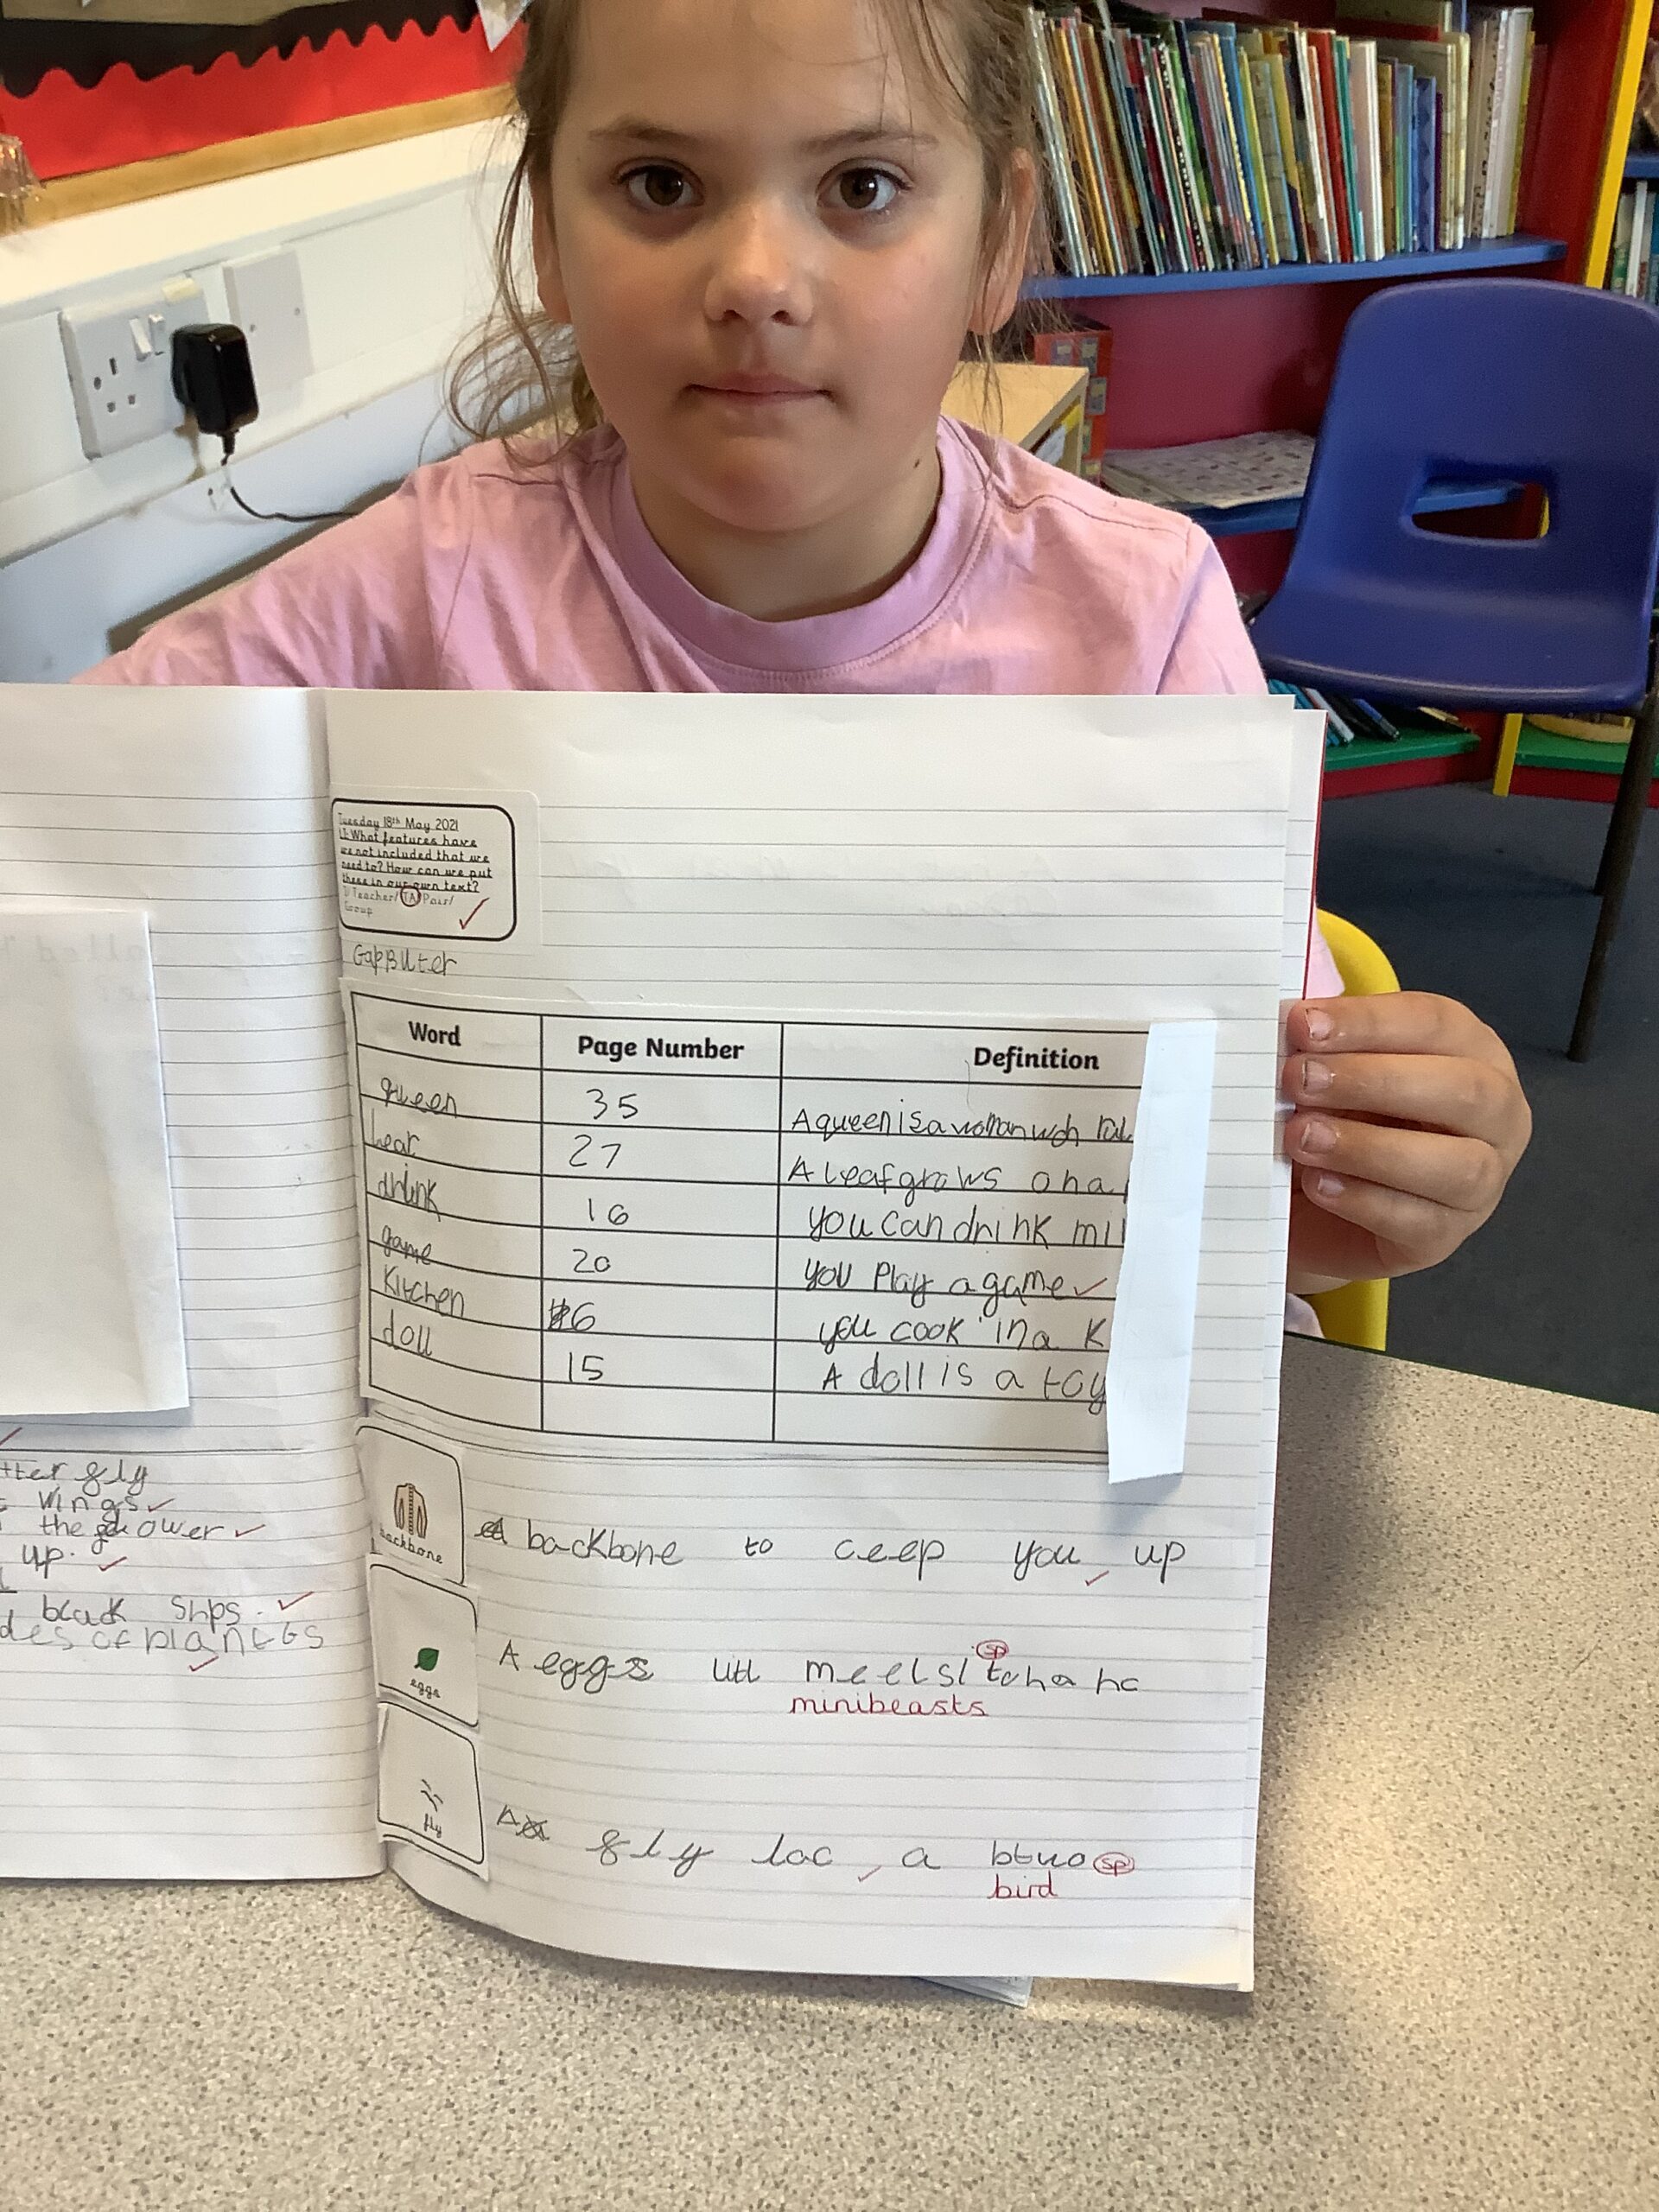 Tuesday 18th May 2021
L.I: What features have
we not included that we
need to? How can we put
these in our own text?
I/ Teacher/ TA/ Pair/
Group
GapButer
Word Page Number Definition
queen 35 A queen is a woman woh rul
27 A leaf grows on a
drink 16 you can drink mil
game 20 you Play a game
Kitchen 6 you cook in a K
doll 15 A doll is a toy
backbone
backbone to ceep you up
eggs
A eggs
sp
minibeasts
fly
A fly lac a
sp
bird
tter fly
wings
the ower
up.
black